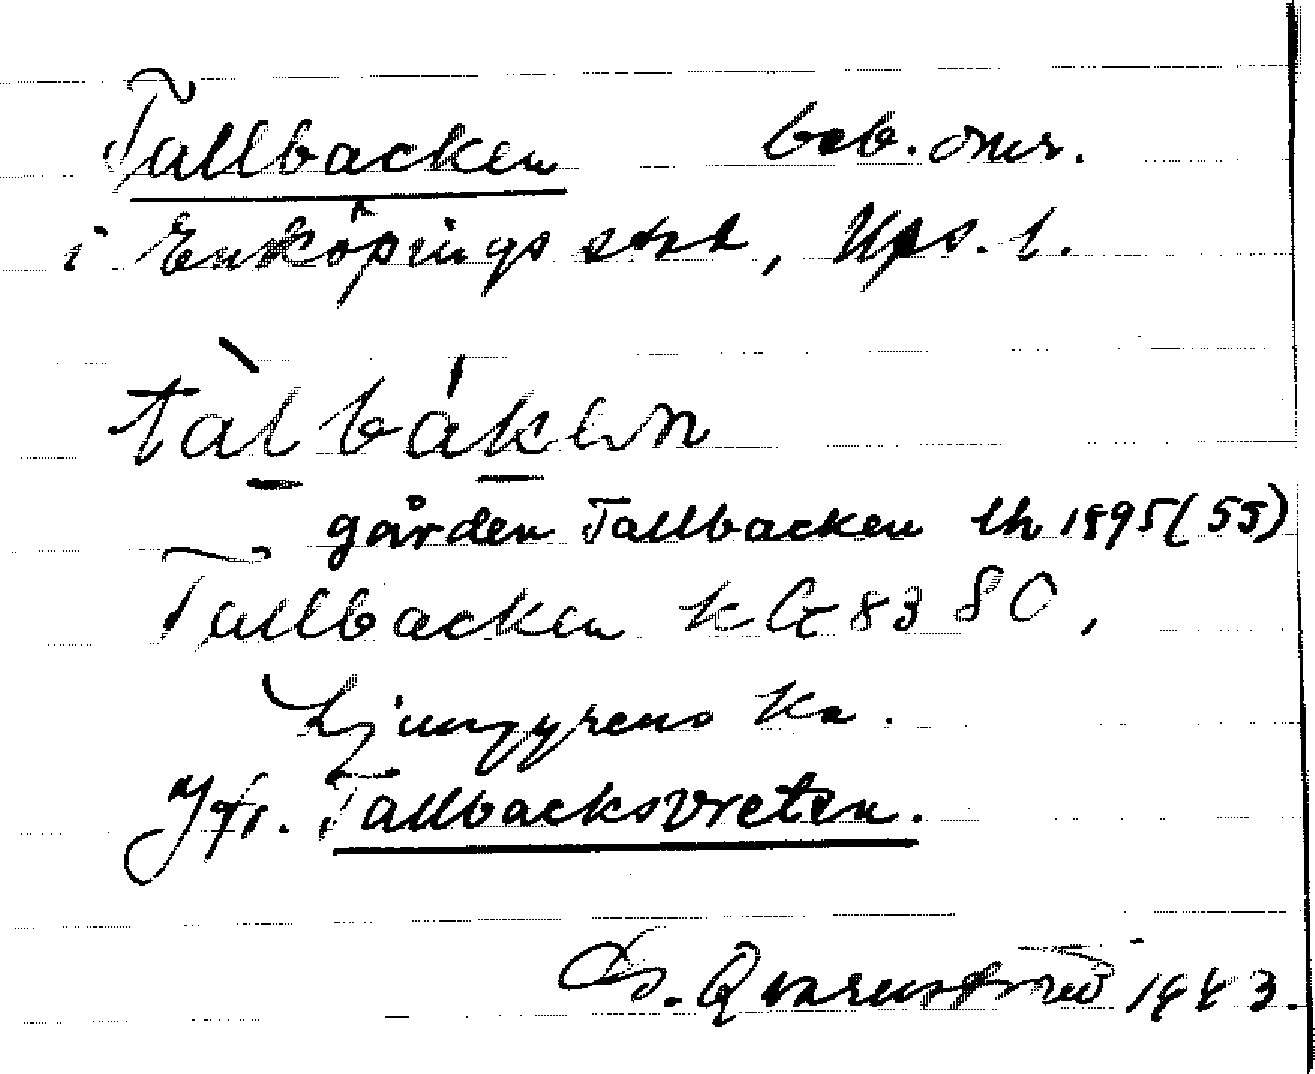 Tallbacken beb. omr.
i Enköpings stad, Ups. l.
tàlbáken
gården Tallbacken lh 1895 (55)
Tallbacken KG 83 80,
Ljunggrens Ka.
Jfr. Tallbacksvreten.
G. Qvarnström 1983.